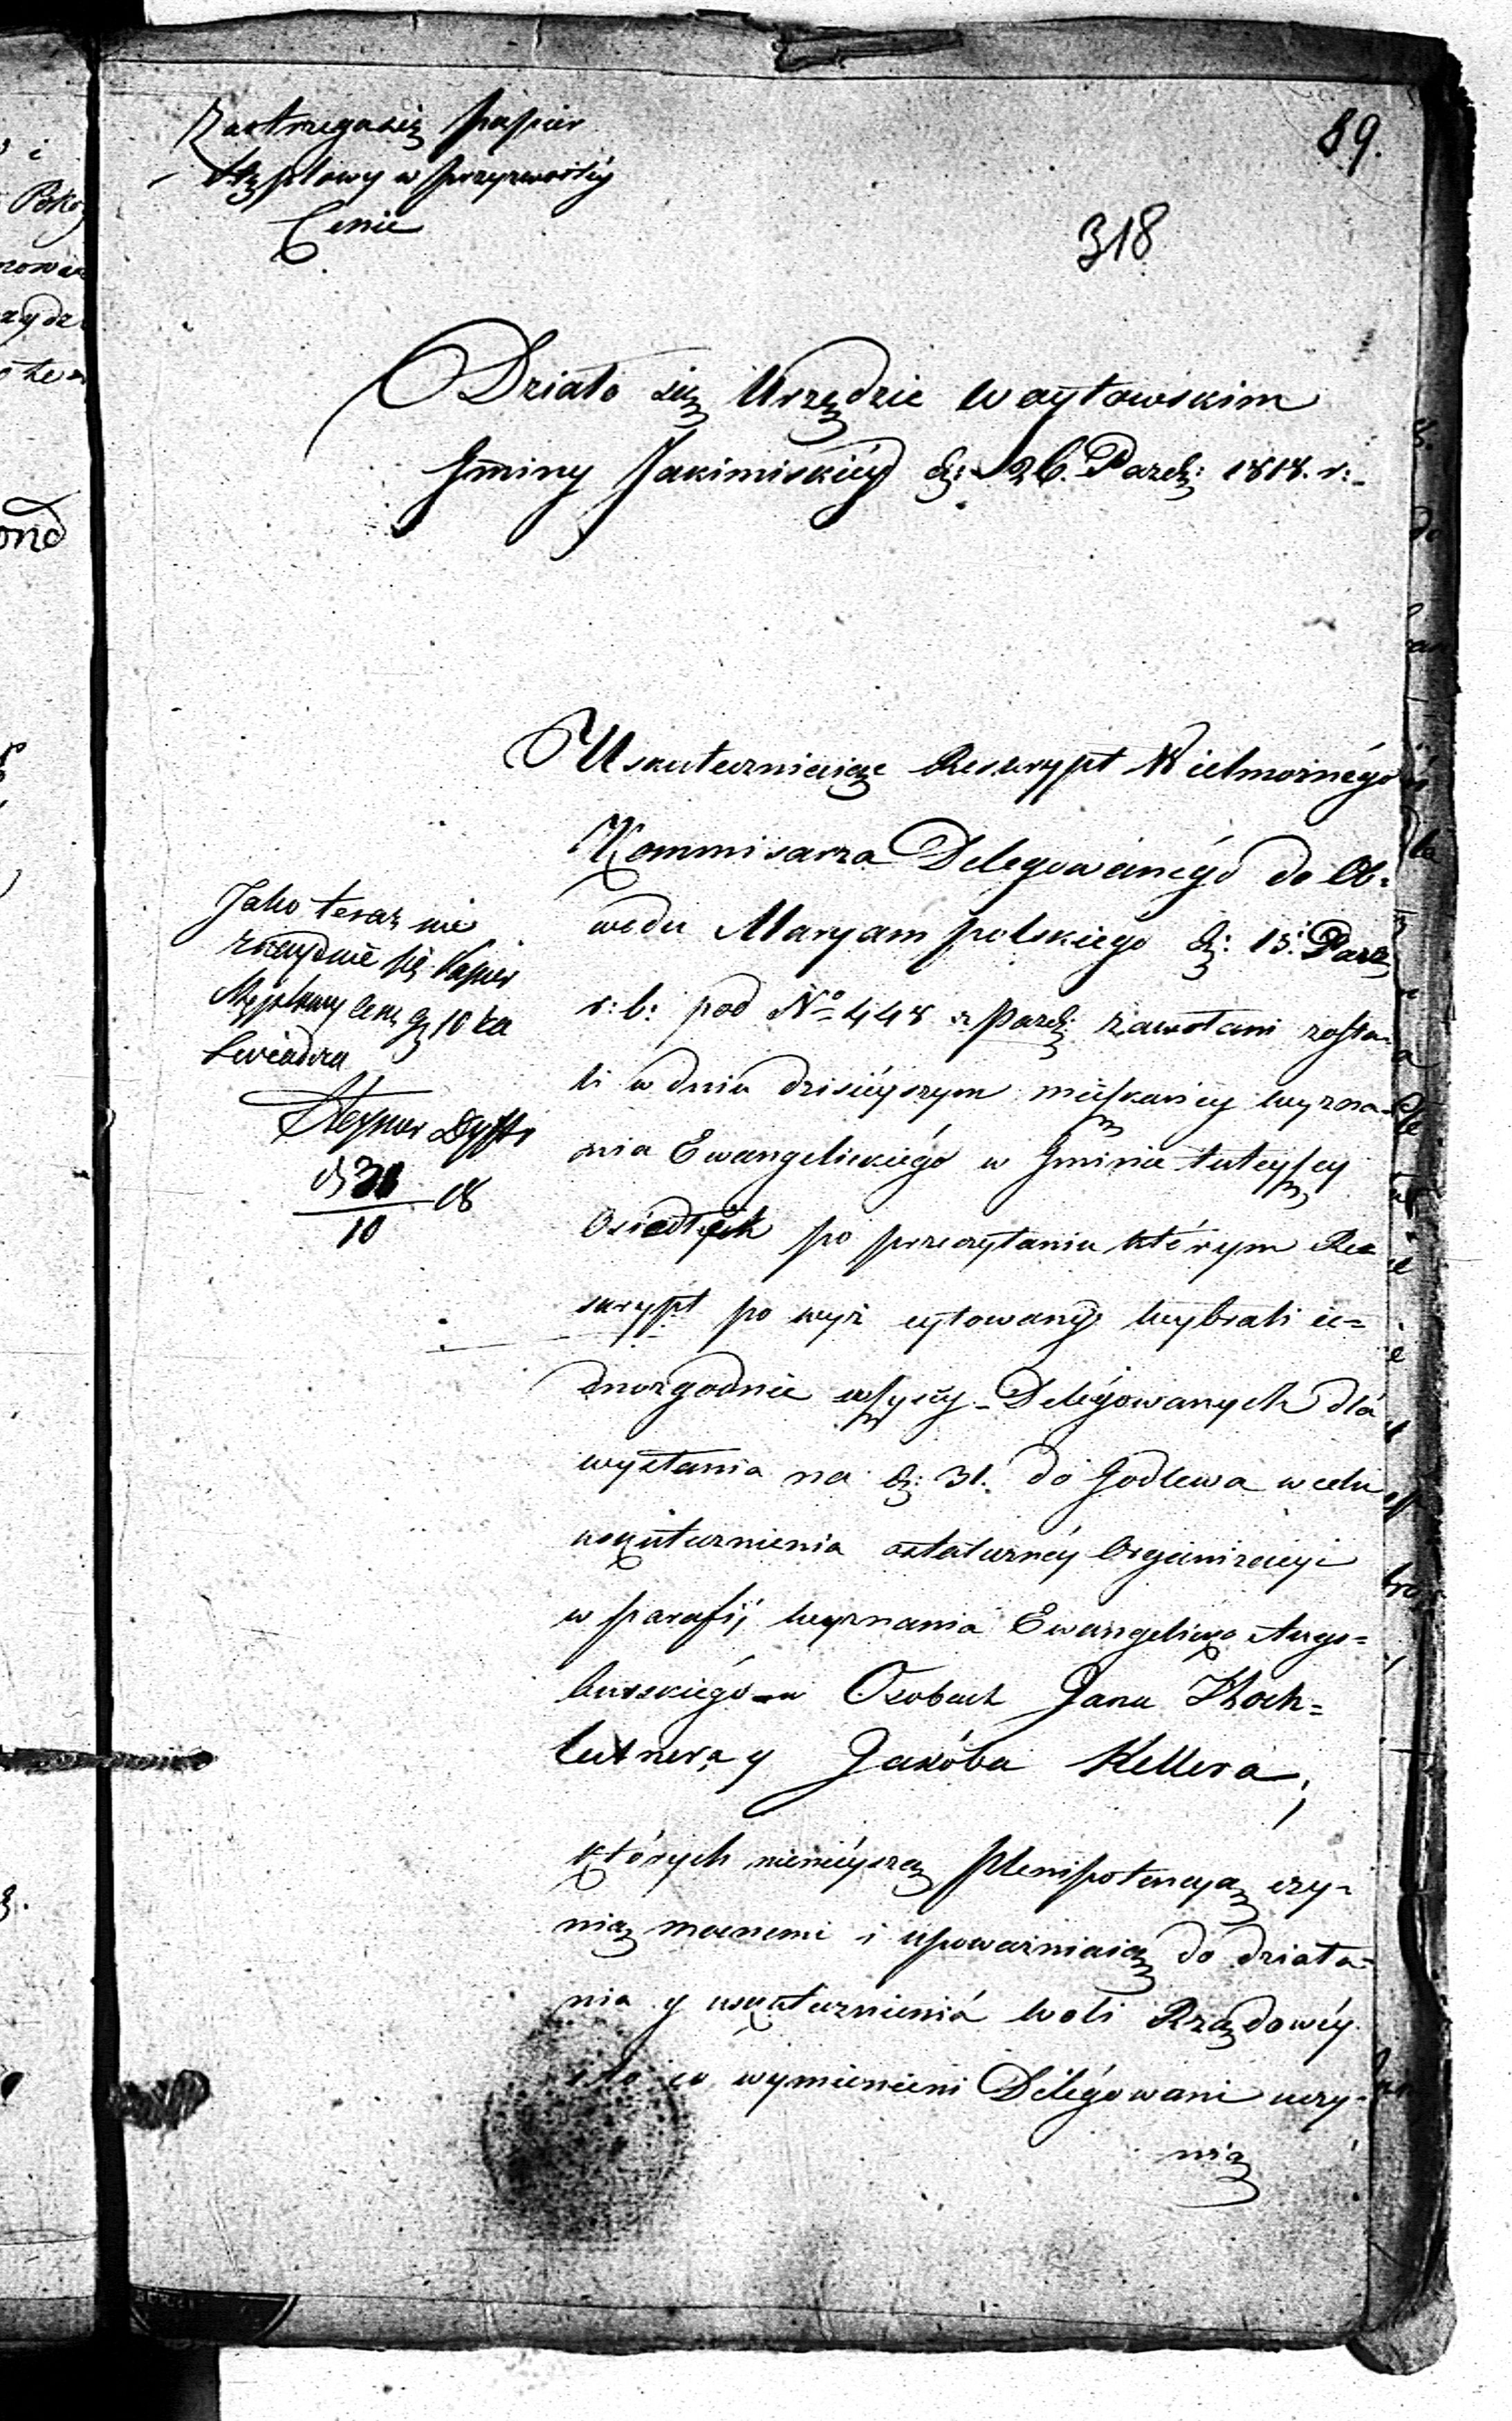 89.
318
Zastrzega się papier
stęplowy w przyzwoitéy
Cenie
Działo się Urzędzie Woytowskim
Gminy Jakimiskiéy d: 26. Pazdź: 1818. r:
Uskuteczniaiąc Reskrypt Wielmożnégo
Kommisarza Delegowanégo do Ob=
wodu Maryampolskiégo d: 15. Pazdz
r: b: pod No 448 zawołani zosta-
li w dniu dzisieyszym mieszkańcy wyzna-
nia Ewangelickiégo w Gminie tuteyszey
Osiedlych po przeczytaniu którym Re
skrypt po wyż cytowany wybrali ie=
dnozgodnie wszyscy Delégowanych dla
wysłania na d: 31. do Godlewa w celu
uskutecznienia ostateczney Organizacyi
w parafij wyznania Ewangelicko Augs=
burskiégo w Osobach Jana
y Jakóba Kellera,
których ninieyszą Plenipotencyą czy-
nią mocnemi i upoważniaią do działa=
nia y uskutecznienia woli Rządowéy
co wymienieni Delégowani uczy-
nią
Jako teraz nie
znayduie się Papier
Stęplowy 10 za
świadcza
d 31/10 18